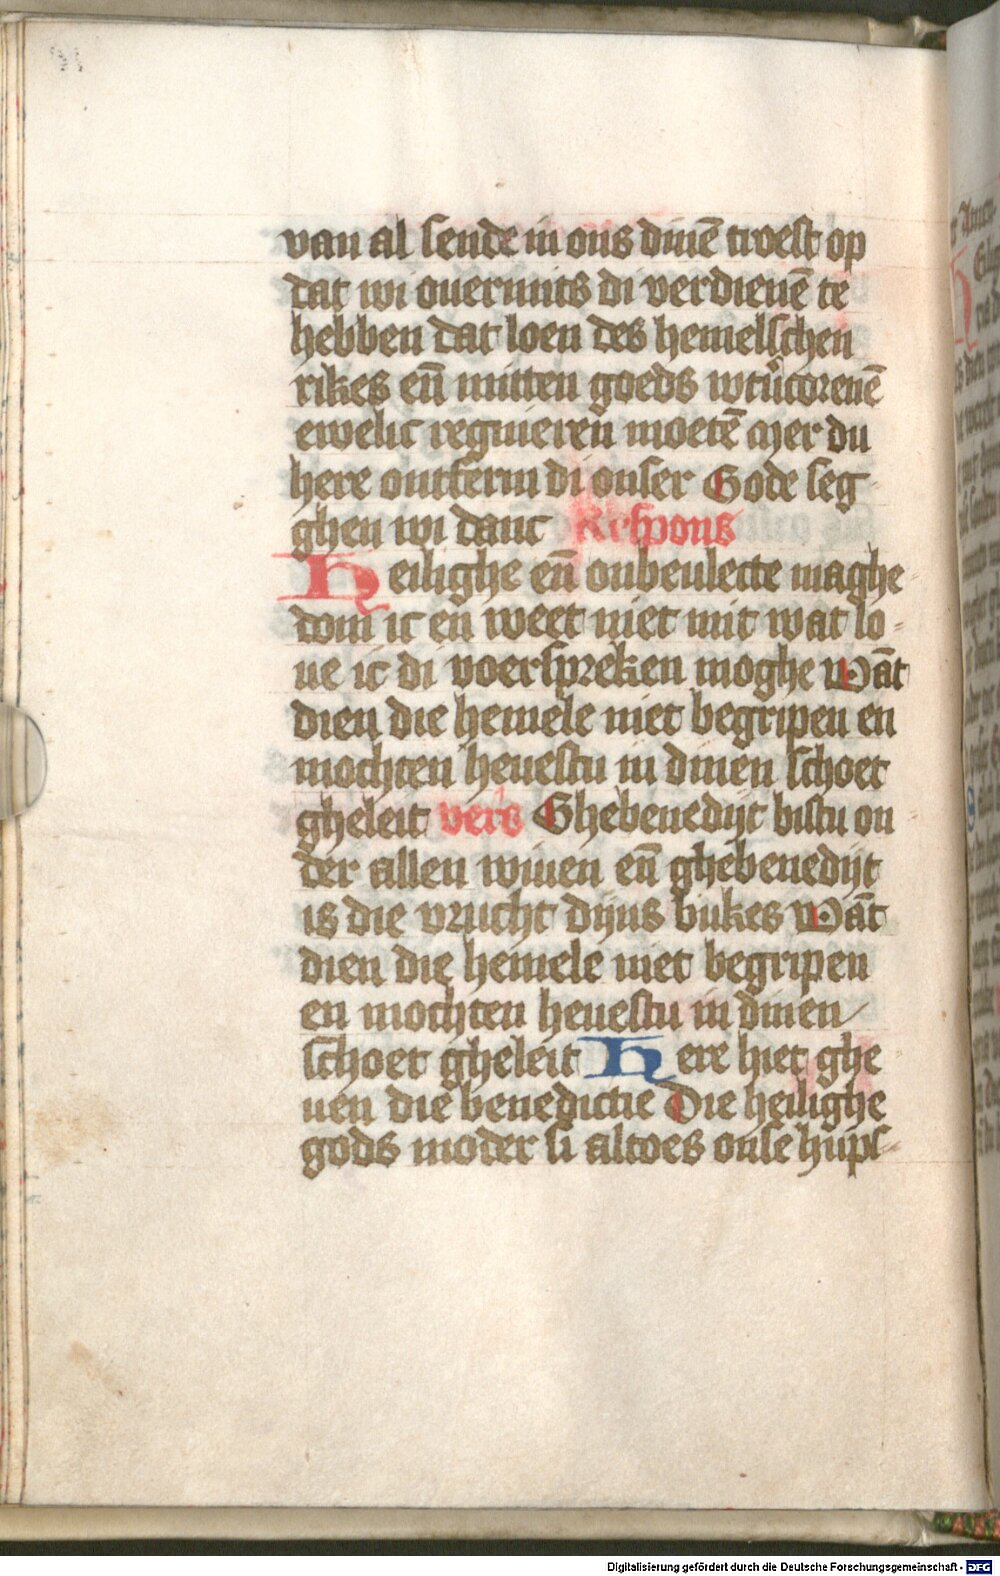 van al sende in ons dinē troest op
dat wi ouermits di verdienē te
hebben dat loen des hemelschen
rikes eñ mitten goeds wtůcorenē
ewelic regnieren moetē Mer du
here ontferm di onser Gode seg
ghen wi danc Respons
Heilighe eñ onbeulecte maghe
dom ic en weet niet mit wat lo-
ue ic di voerspreken moghe Wāt
dien die hemele niet begripen en
mochten heuestu in dinen schoet
gheleit vers Ghebenedijt bistu on
der allen wiuen eñ ghebenedijt
is die vrucht dijns bukes Wāt
dien die hemele niet begripen
en mochten heuestu in dinen
schoet gheleit Here hiet ghe
uen die benedictie Die heilighe
gods moder si altoes onse hulps
Digitalisierung gefördert durch die Deutsche Forschungsgemeinschaft - DFG